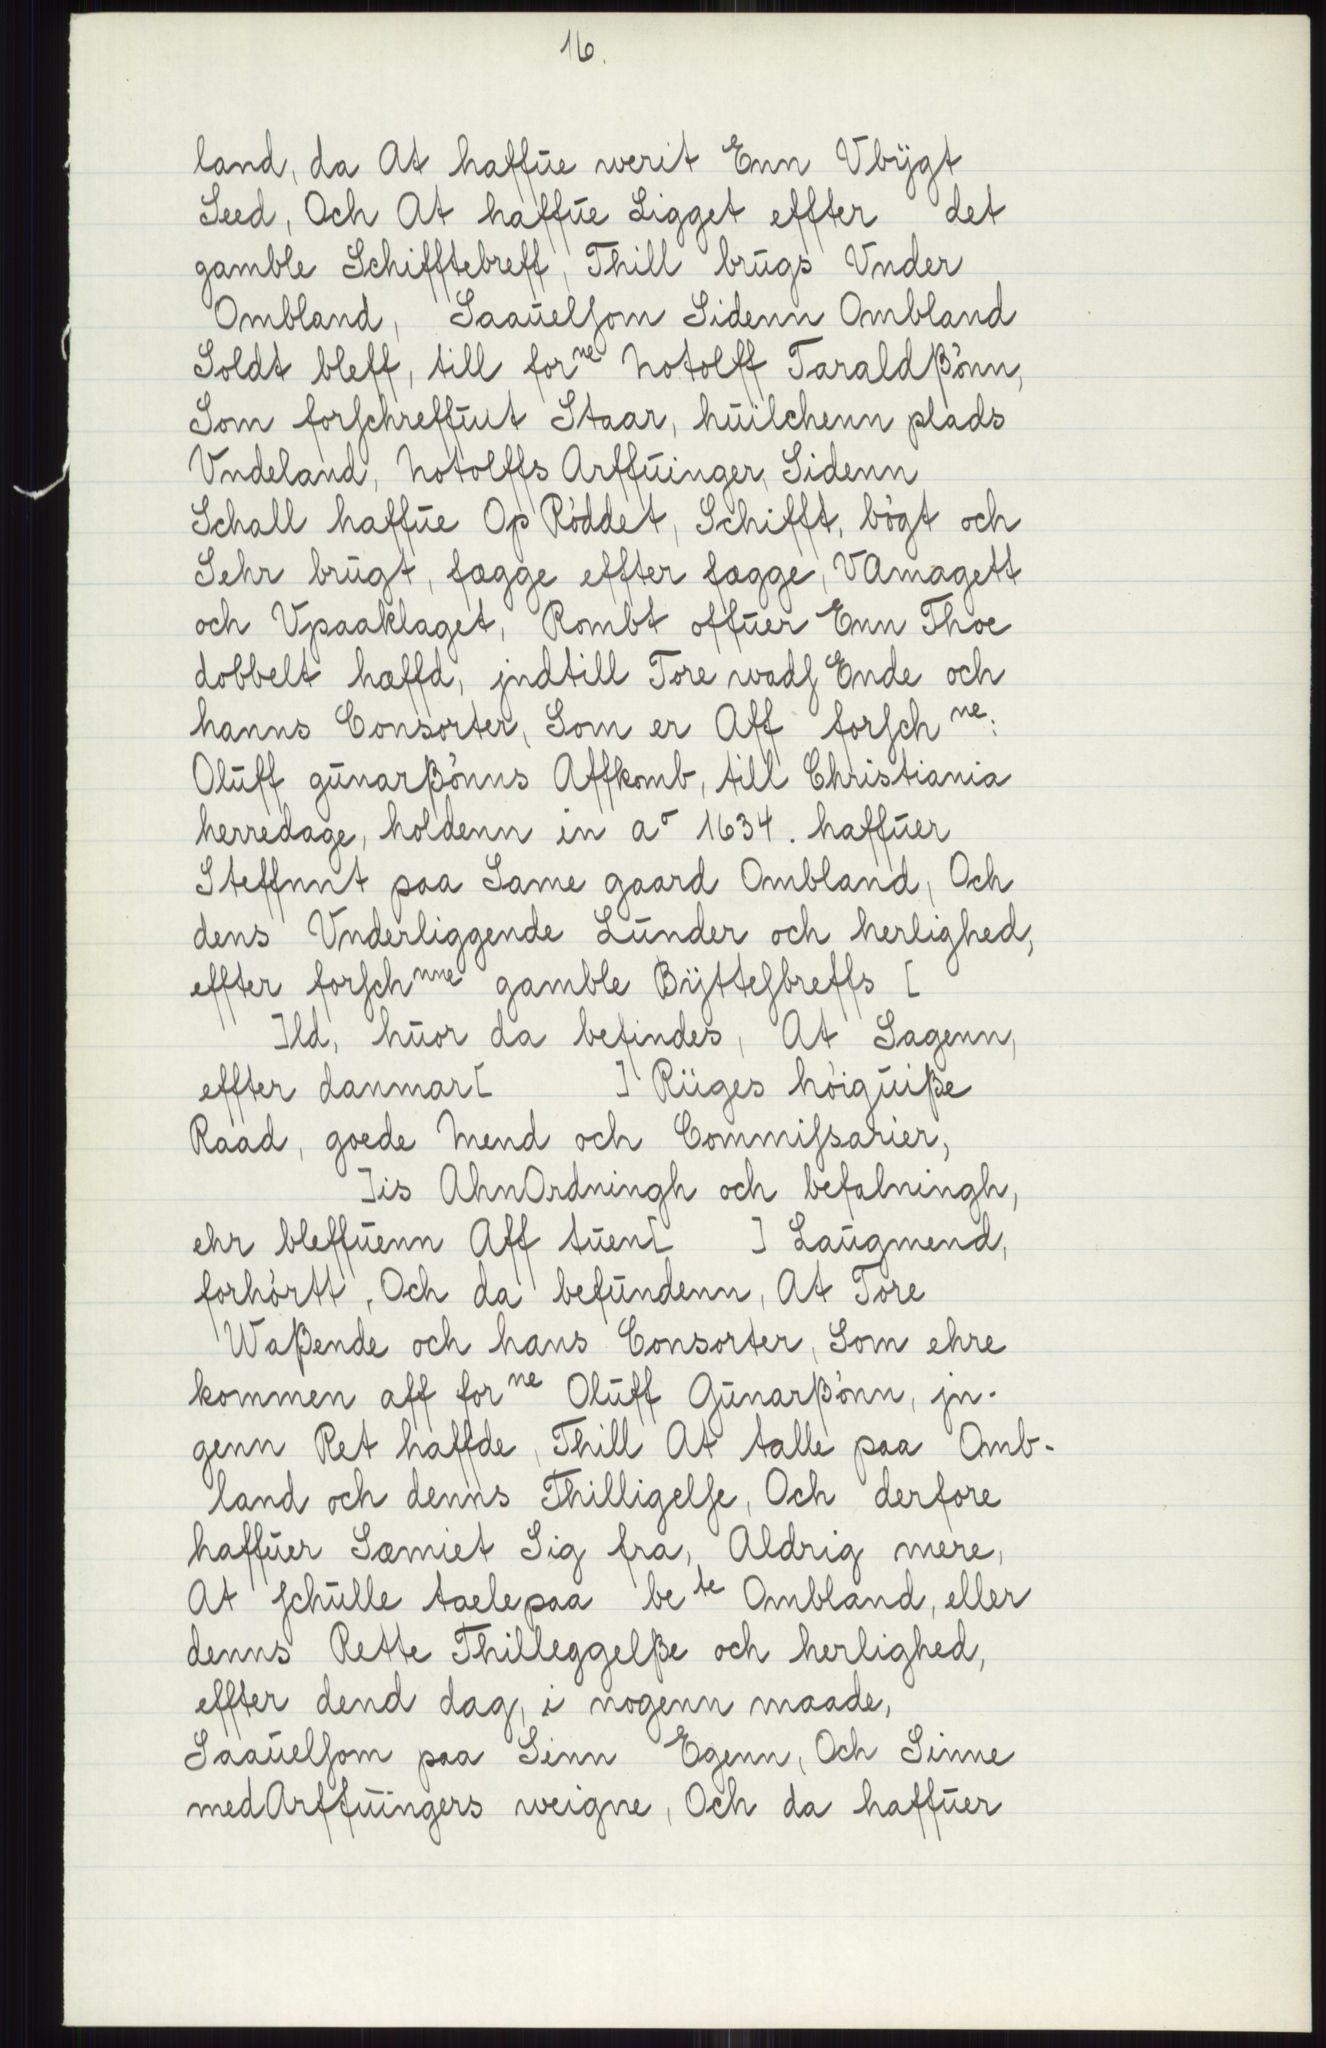 16.
land, da At haffue werit Enn Vbÿgt
Seed, Och At haffue Ligget effter det
gamble Schifftebreff, Thill brugs Vnder
Ombland, Saauelsom Sidenn Ombland
Soldt bleff, till for ne Notolff Taraldßònn,
Som forschreffuit Staar, huilchenn plads
Vndeland, Notolffs Arffuinger, Sidenn
Schall haffue Op Ròddet, Schifft, bògt och
Sehr brugt, fægge effter fægge, VAmagett
och Vpaaklaget, Rombt offuer Enn Thoe
dobbelt hæffd, jndtill Tore wads Ende och
hanns Consorter, Som er Aff forsch ne:
Oluff gunarßònns Affkomb, till Christiania
herredage, holdenn in aº 1634. haffuer
Steffnnt paa Same gaard Ombland, Och
dens Vnderliggende Lunder och herlighed,
effter forsch nne gamble Bÿttesbreffs [
]ld, huor da befindes, At Sagenn,
effter danmar[ ] Rüges hòiguiße
Raad, goede Mend och Commissarier,
]is AhnOrdningh och befalningh,
ehr bleffuenn Aff tuen[ ] Laugmend,
forhòrtt, Och da befundenn, At Tore
Waßende och hans Consorter, Som ehre
kommen aff for ne Oluff Gunarßònn, jn-
genn Ret haffde, Thill At talle paa Omb-
land och denns Thilligelse, Och derfore
haffuer Sæmiet Sig fra, Aldrig mere,
At schulle taelepaa be te Ombland, eller
denns Rette Thilleggelße och herlighed,
effter dend dag, i nogenn maade,
Saauelsom paa Sinn Egenn, Och Sinne
medArffuingers weigne, Och da haffuer